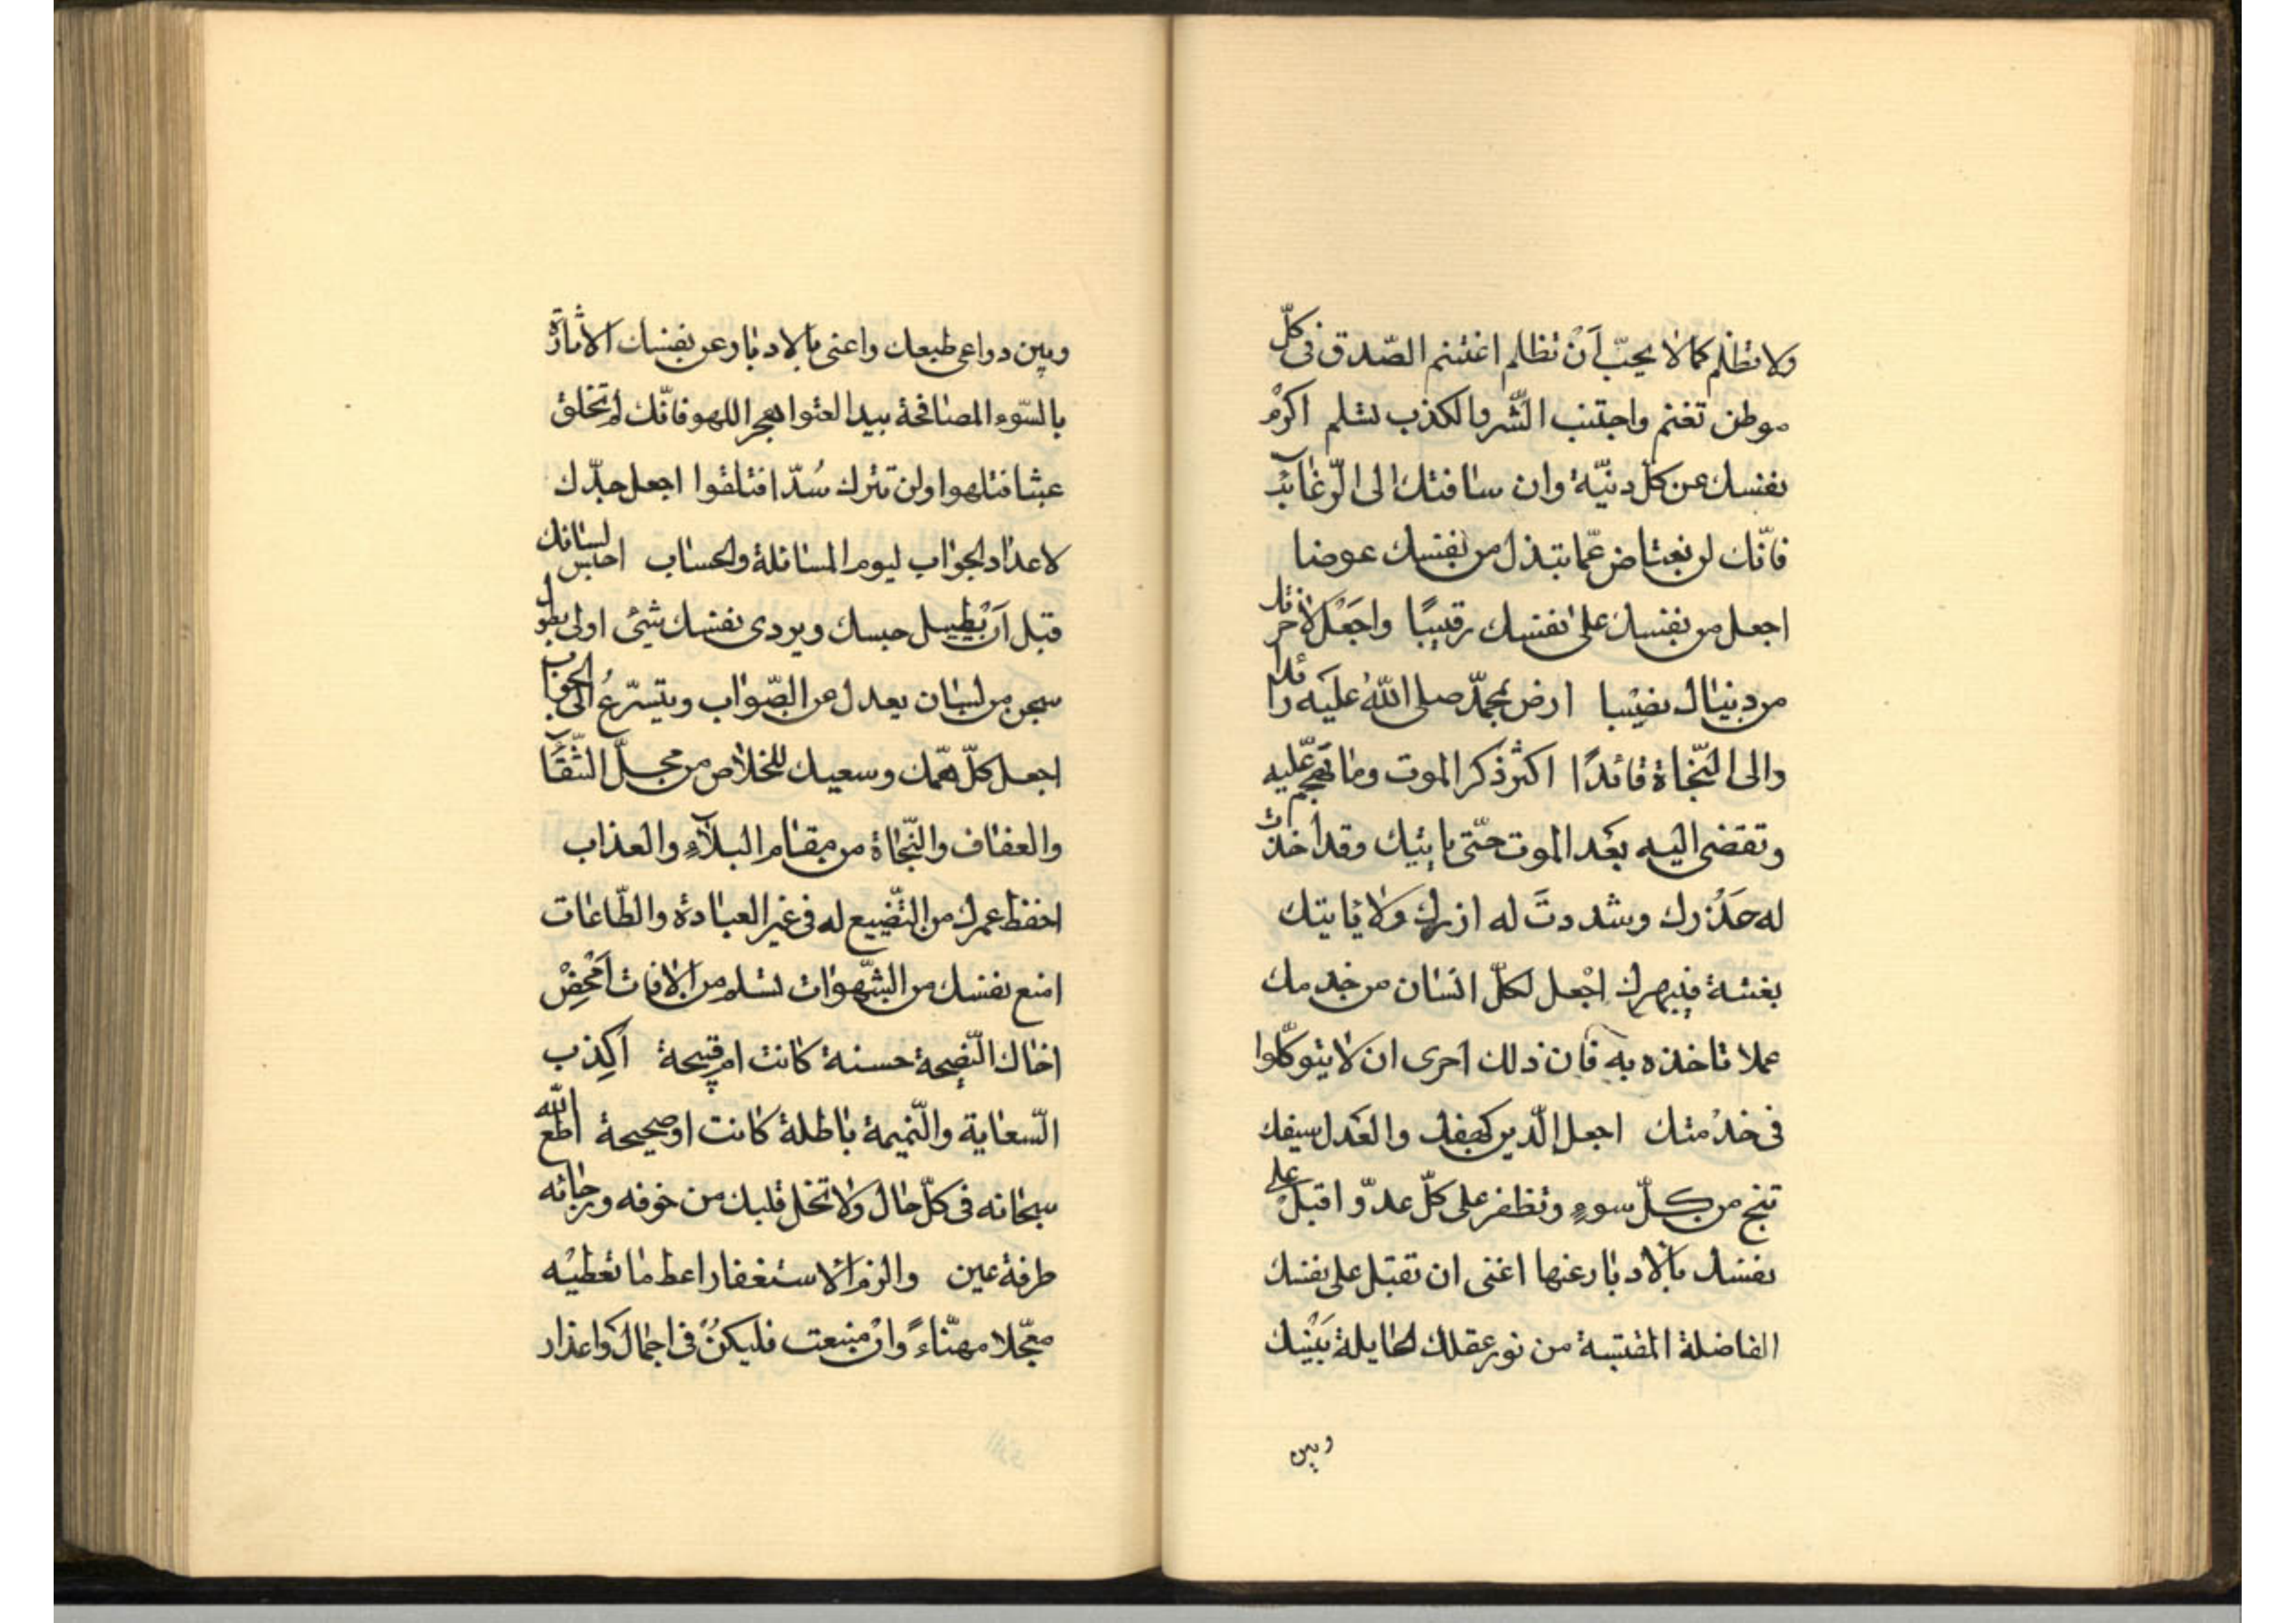 ولا تظلم كما لا يحبّ أنْ تظلم اغتنم الصّدق فى كلّ
موطن تغنم واجتنب الشّر والكذب تسلم اكرمْ
نفسك عن كلّ دنيّة وان ساقتك الى الرّغائب
فانّك لن تعتاض عمّا تبتذل من نفسك عوضا
اجعل من نفسك على نفسك رقيبًا واجَعْل لآخرتك
من دنياك نصيبا ارض بمحمّد صلى اللّه عليَه رائدا
والى النّجاة قائدًا اكثر ذكر الموت وما تهجم عليه
وتقضى اليه بعْد الموت حتّى ياتيك وقد اخذت
له حَذْرك وشددتَ له ازرك ولا ياتيك
بغتة فيبهرك اجْعل لكلّ انسان من خدمك
عملا تاخذه به فان ذلك احرى ان لا يتوكّلوا
فى خدْمتك اجعل الّدين كهفك والعَدل سيفك
تنج من كلّ سوءٍ وتظفر على كلّ عدوّ اقبلْ على
نفسك بالادبار عنها اعنى ان تقبل على نفسك
الفاضلة المقتبسة من نور عقلك الحايلة بَيْنك
وبين
وبين دواعى طبعك واعنى بالادبار عن نفسك الامّارة
بالسّوء المصافحة بيد العتوا لهجر اللهو فانّك لم تخلق
عبثا فتلهوا ولن تترك سُدّا فتلغوا اجعل جدّك
لاعداد الجواب ليوم المسائلة والحساب احبس لسانك
قبل اَنْ يطيل حبسك ويردى نفسك شئ اولى بطول
سجن من لسان يعدل عن الصّواب ويتسرّعُ الى الجواب
اجعل كلّ همّك وسعيك للخلاص من محلّ الشّقآ
والعفاف والنّجاة من مقام البلآءِ والعذاب
احفظ عمرك من التّضييع له فى غير العبادة والطّاعات
امنع نفسك من الشّهوات تسلم من الافات اَمْحِضْ
اخاك النّصيحة حسنة كانت ام قبيحة اَكِذب
السّعاية والنّميمة باطلة كانت او صحيحة اطع اللّه
سبحانه فى كلّ حال ولا تخل قلبك من خوفه ورجائه
طرفة عين والزم الاستغفار اعط ما تعطيْه
معجّلا مهنّاءً وانْ منعت فليكنْ فى اجمال واعذار